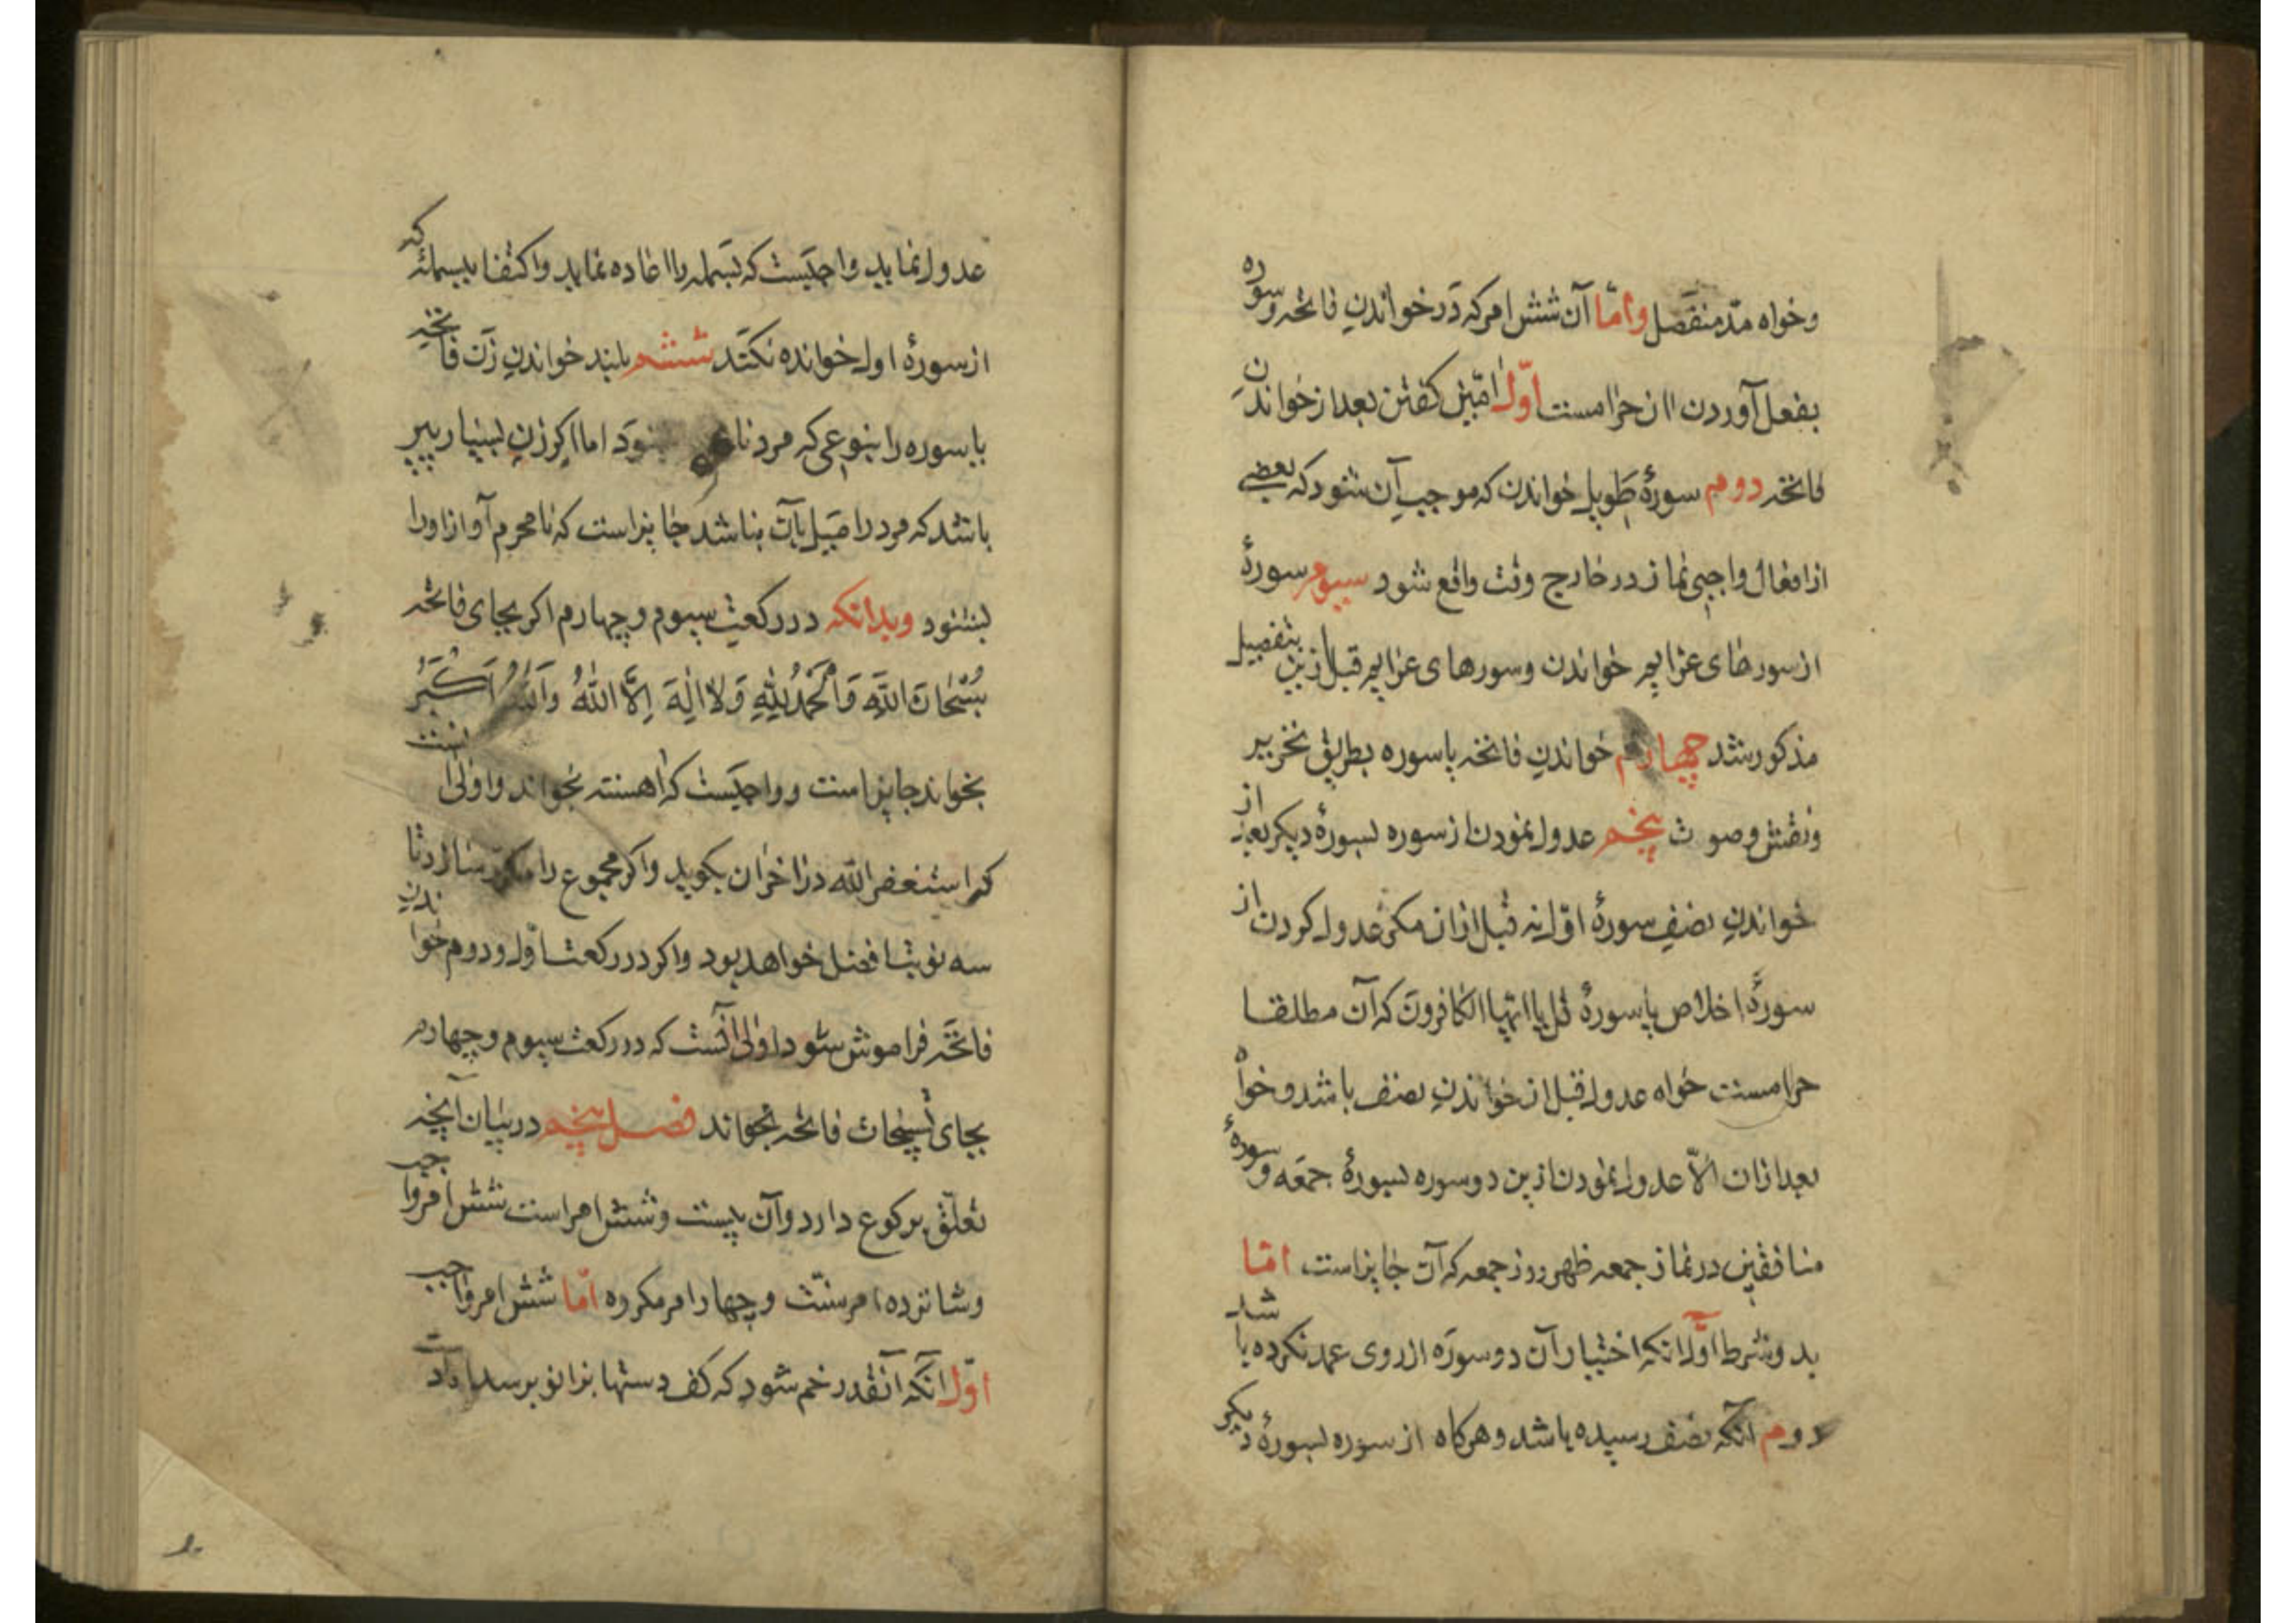 وخواه مدّ منفصل وامّا آن شش امر که در خواندن فاتحه وسوره
بفعل آوردن ان حرامست اوّل امّین کفتن بعد از خواندن
فاتحه دوم سورهٔ طویل خواندن که موجب آن شود که بعضی
از افعال واجبی نماز در خارج وقت واقع شود سیوم سورهٔ
از سورهای عزایم خواندن وسورهای عزایم قبل ازین بتفصیل
مذکور شد چهارم خواندن فاتحه یا سوره بطریق تحریر
ونقش وصوت پنجم عدول نمودن از سوره بسورهٔ دیکر بعد از
خواندن نصف سورهٔ اوّل نه قبل ازان مکر عدول کردن از
سورهٔ اخلاص یا سورهٔ قل یا ایّها الکافرون که آن مطلقا
حرامست خواه عدول قبل از خواندن نصف باشد وخواه
بعد ازان الّا عدول نمودن ازین دو سوره بسورهٔ جمعه وسورهٔ
منافقین در نماز جمعه ظهر روز جمعه که آن جایز است امّا
بدو شرط اوّل انکه اختیار آن دو سوره از روی عمد نکرده باشد
دوم انکه بنصف رسیده باشد وهرکاه از سوره بسورهٔ دیکر
عدول نماید واجبست که بسمله را اعاده نماید واکتفا ببسملهٔ که
از سورهٔ اول خوانده نکند ششم بلند خواندن زن فاتحه
یا سوره را بنوعی که مرد نا شنود اما اکر زن بسیار پیر
باشد که مرد را میل بآن نباشد جایز است که نامحرم آواز اورا
بشنود وبدانکه در رکعت سیوم وچهارم اکر بجای فاتحه
سُبْحَانَ اللَّهِ وَالْحَمْدُ لِلَّهِ وَلَا الٰهَ اِلَّا اللَّهُ وَاللَّهُ اَکْبَرُ
بخواند جایز است وواجبست که اهسته بخواند واولی انست
که استغفر الله در اخر ان بکوید واکر مجموع را مکرر سازد تا
سه نوبت افضل خواهد بود واکر در رکعت اول ودوم خواندن
فاتحه فراموش شود اولی آنست که در رکعت سیوم وچهارم
بجای تسبیحات فاتحه بخواند فصل پنجم در بیان آنچه
تعلّق برکوع دارد وآن بیست وشش امر است شش امر واجب
وشانزده امر سنّت وچهار امر مکروه امّا شش امر واجب
اوّل انکه آنقدر خم شود که کف دستها بزانو برسد